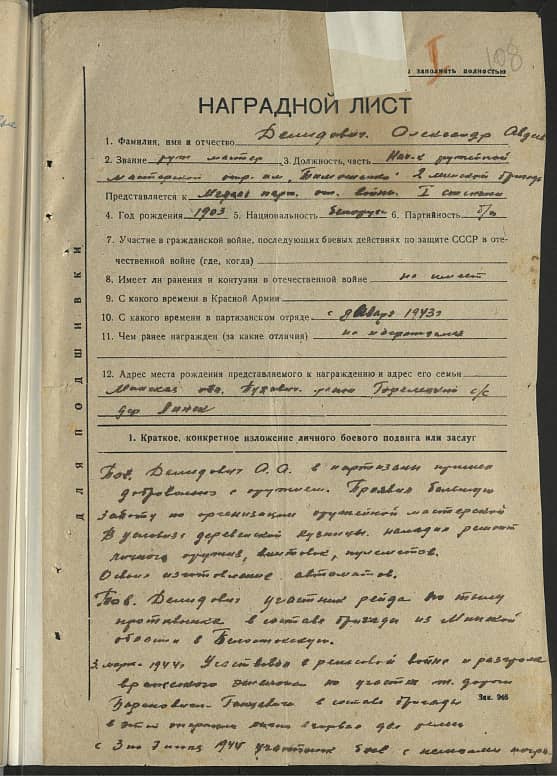 I 108
заполнять полностью
НАГРАДНОЙ ЛИСТ
1. Фамилия, имя и отчество Демидович Александр
2. Звание руж мастер 3. Должность, часть Нач-к оружейной
мастерской отр. им. Тимошенко 2 минской бригады
Представляется к Медаль парт. от. войны I степени
4. Год рождения 1903 5. Национальность Белорус 6. Партийность б/п
7. Участие в гражданской войне, последующих боевых действиях по защите СССР в оте-
чественной войне (где, когда)
8. Имеет ли ранения и контузии в отечественной войне не имеет
9. С какого времени в Красной Армии
10. С какого времени в партизанском отряде с января 1943г
11. Чем ранее награжден (за какие отличия) не награждался
12. Адрес места рождения представляемого к награждению и адрес его семьи
Минская обл. района с/с
дер
1. Краткое, конкретное изложение личного боевого подвига или заслуг
Тов. Демидович А. А. в партизаны пришел
добровольно с оружием. Проявил большую
заботу по организации оружейной мастерской
В условиях деревенской кузницы наладил ремонт
личного оружия, винтовок, пулеметов.
Освоил изготовление автоматов.
Тов. Демидович участник рейда по тылу
противника в составе бригады из Минской
области в Белостокскую.
3 марта 1944г Участвовал в рельсовой войне и разгроме
вражеского эшелона на участке ж. дороги
Барановичи в составе бригады
в этой операции
с 3 по 7 1944 участник боев с немцами
Зак. 946
ДЛЯ ПОДШИВКИ